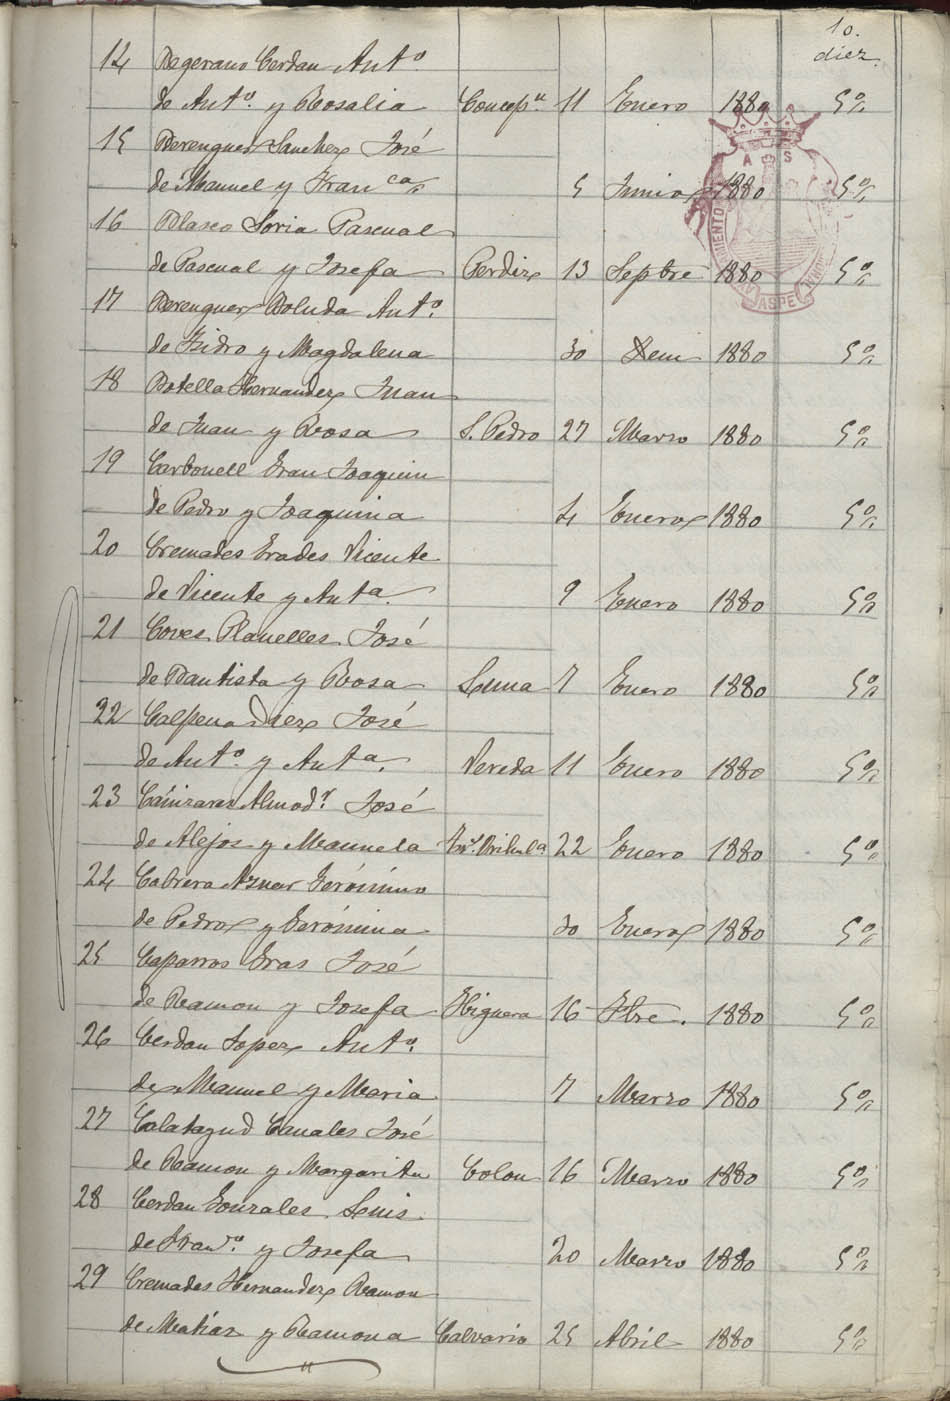 10.
diez.
14 Begerano Cerdan Antº
de Antº. y Rosalia Concepn. 11 Enero 1880 5º/
15 Berenguer Sanchez José
de Manuel y Franca. 5 Junio 1880 5º/
A S
16 Blasco Soria Pascual
de Pascual y Josefa Perdiz 13 Septre 1880 5º/
ASPE
17 Berenguer Boluda Antº.
de Isidro y Magdalena 30 Idem 1880 5º/
18 Botella Hernandez Juan
de Juan y Rosa S. Pedro 27 Marzo 1880 5º/
19 Carbonell Gran Joaquin
de Pedro y Joaquina 4 Enero 1880 5º/
20 Cremades Erades Vicente
de Vicente y Anta. 9 Enero 1880 5º/
21 Coves Planelles José
de Bautista y Rosa Luna 7 Enero 1880 5º/
22 Calpena Diez José
de Antº. y Anta. Vereda 11 Enero 1880 5º/
23 Cañizares Almodr. José
de Alejos y Manuela Orihula 22 Enero 1880 5º/
24 Cabrera Aznar Gerónimo
de Pedro y Gerónima 30 Enero 1880 5º/
25 Caparros Gras José
de Ramon y Josefa Higuera 16 Fbre. 1880 5º/
26 Cerdan Lopez Antº.
de Manuel y Maria 7 Marzo 1880 5º/
27 Calatayud Canales José
de Ramon y Margarita Colon 16 Marzo 1880 5º/
28 Cerdan Gonzales Luis
de Franº. y Josefa 20 Marzo 1880 5º/
29 Cremades Hernandez Ramon
de Matias y Ramona Calvario 25 Abril 1880 5º/